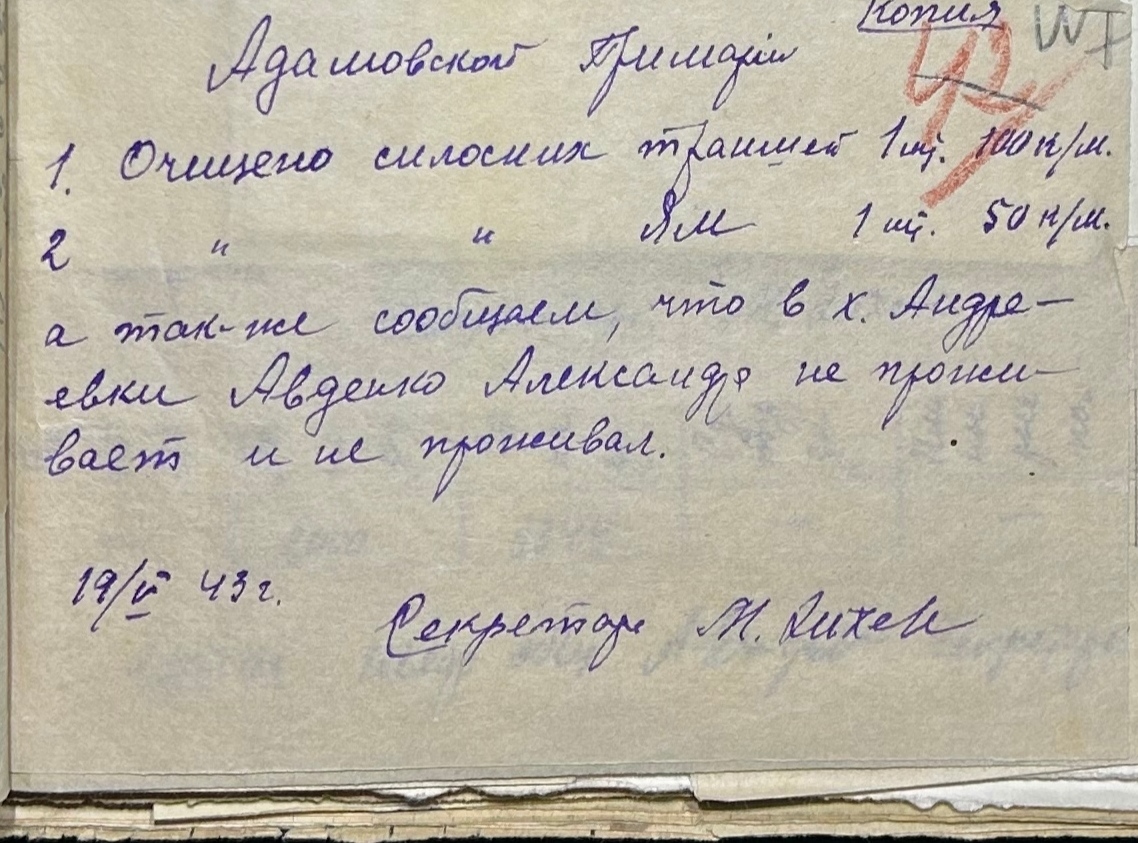 Копия
Адамовской Примарии
1. Очищено силосних траншей 1 шт. 100 к/м.
2 " " Ям 1 шт. 50 к/м.
а так-же сообщаем, что в х. Андре-
евки Авденко Александр не прожи-
вает и не проживал.
19/VI 43 г.
Секретарь М.